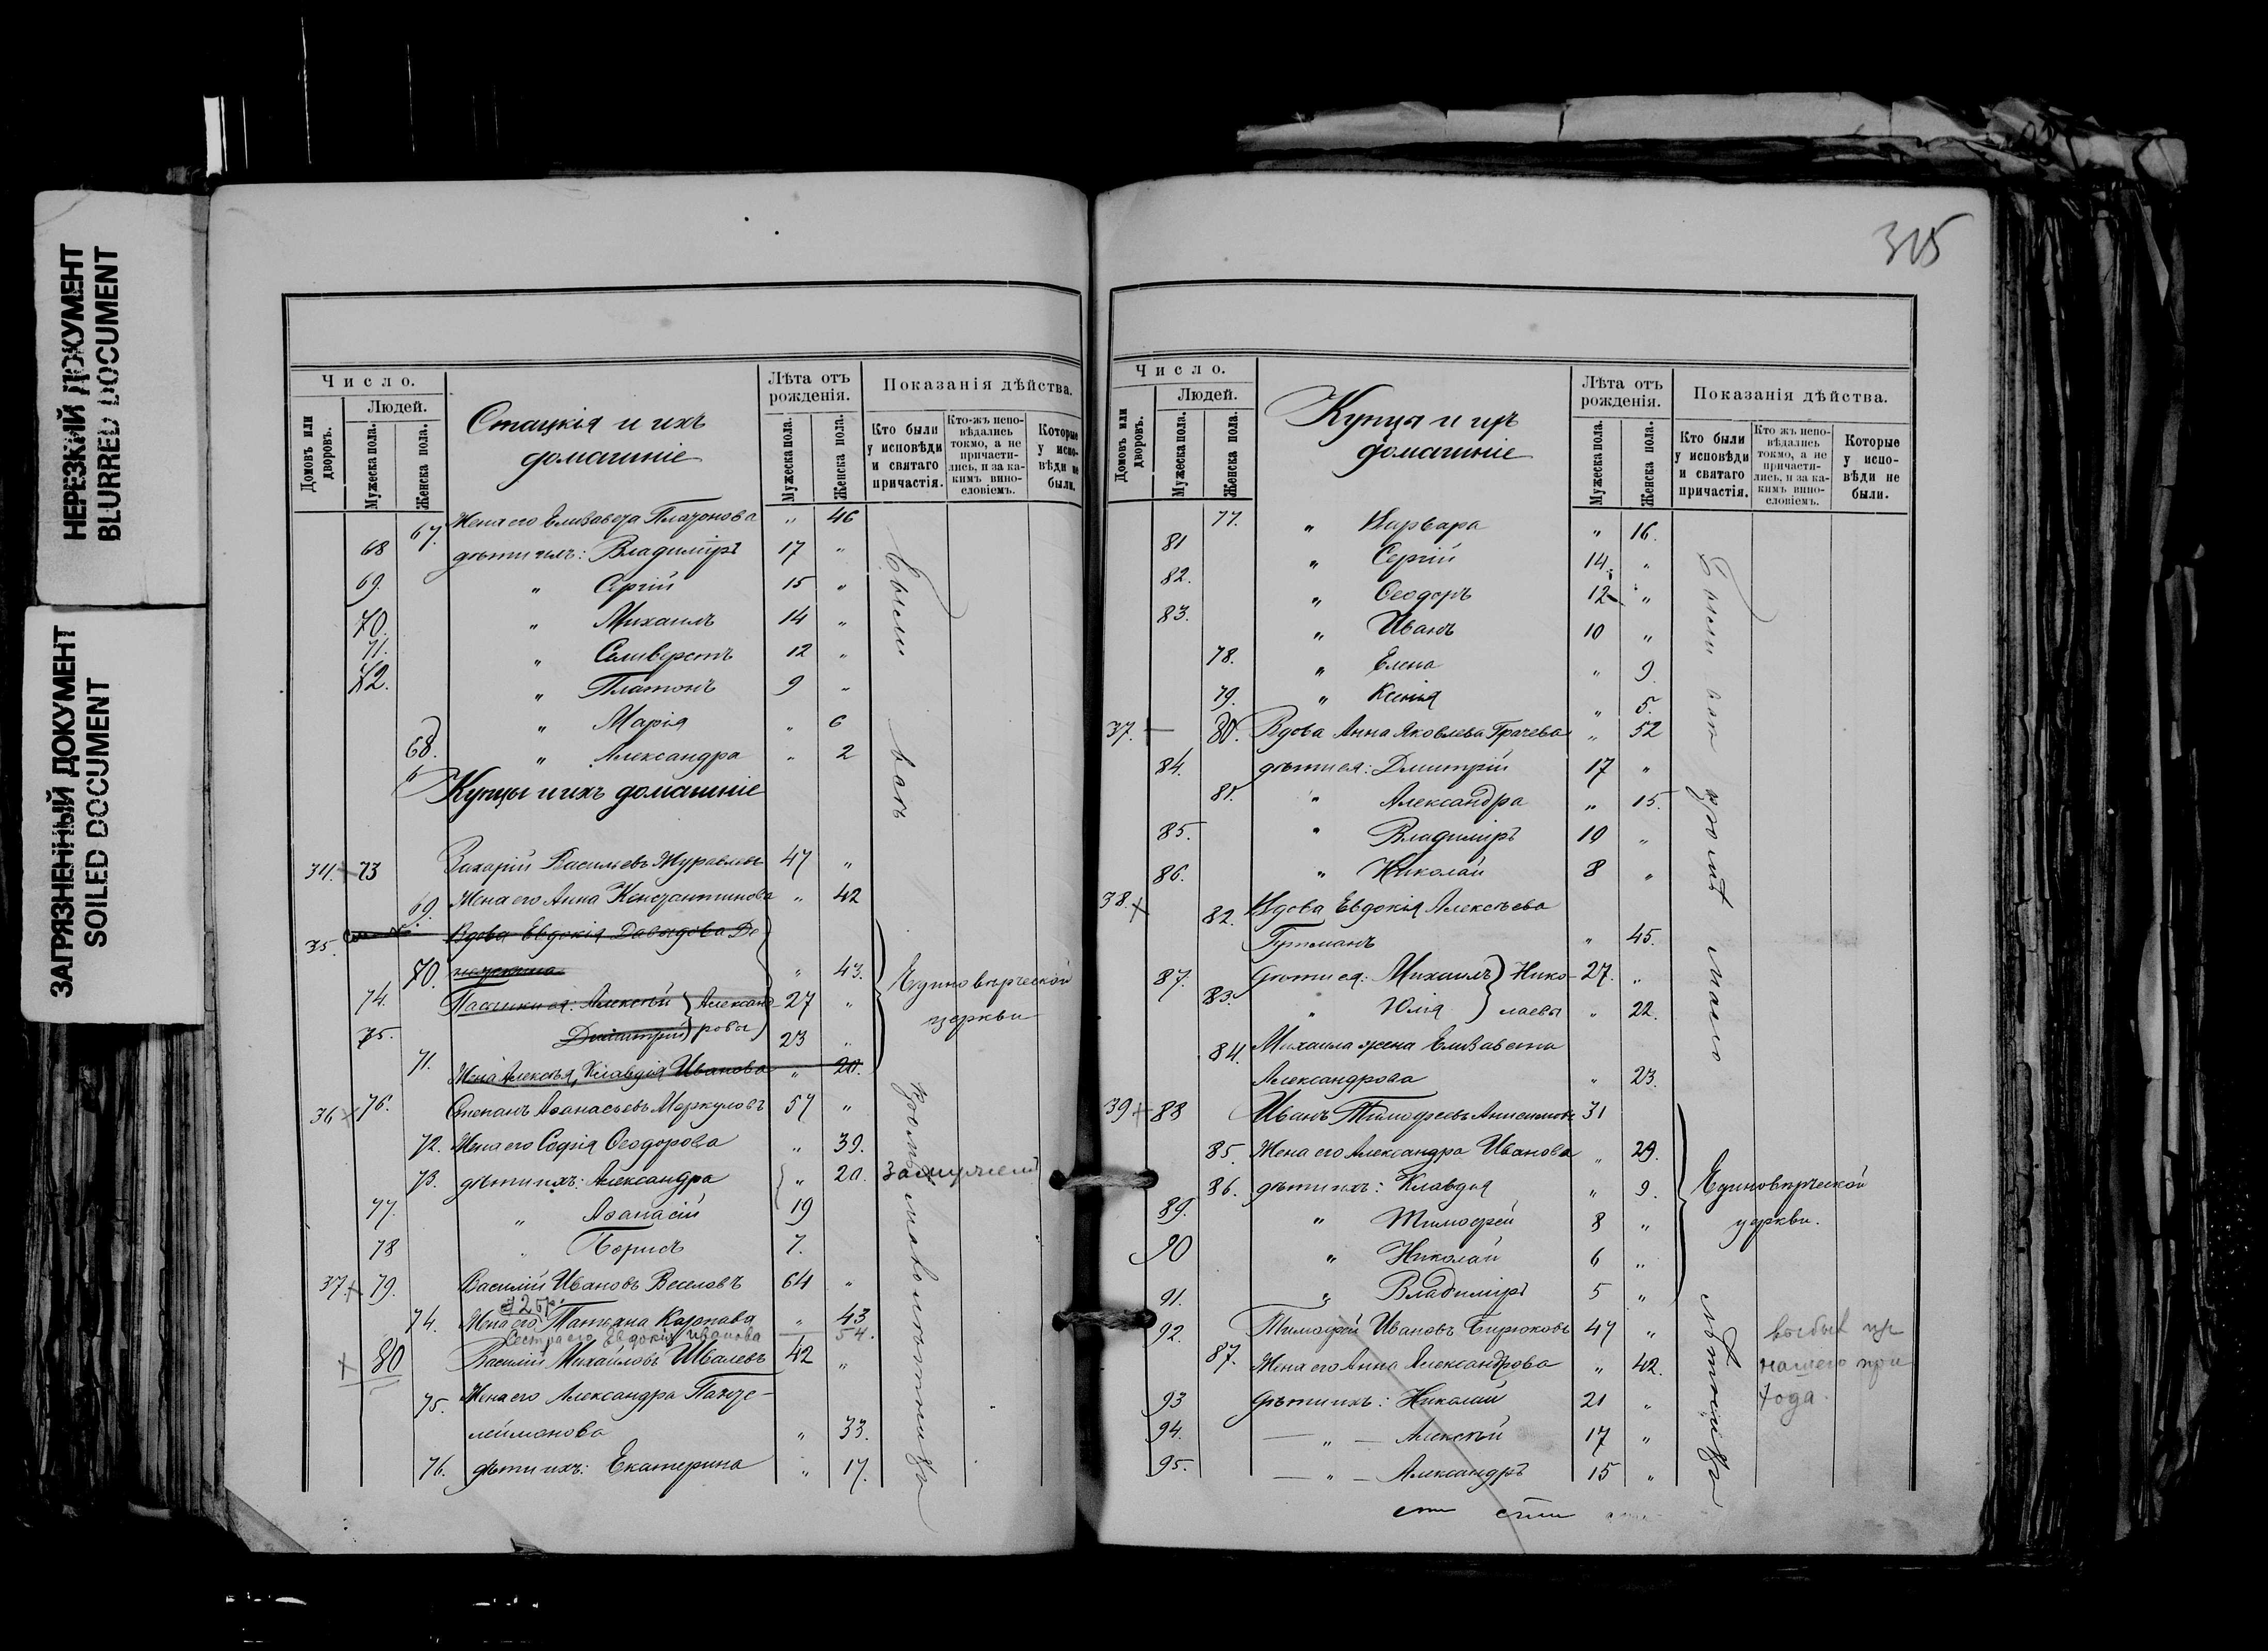 НЕРЕЗКИЙ ДОКУМЕНТ
BLURRED DOCUMENT
ЗАГРЯЗНЕННЫЙ ДОКУМЕНТ
SOILED DOCUMENT
Число.
Людей.
Домовъ или дворовъ.
Мужеска пола.
Женска пола.
Стацкія и ихъ
домашніе
Лѣта отъ рожденія.
Мужеска пола.
Женска пола.
Показанія дѣйства.
Кто были у исповѣди и святаго причастія.
Кто-жъ исповѣдались токмо, а не причастились, и за какимъ винословіемъ.
Которые у исповѣди не были.
67. Жена его Елизавета Платонова " 46
68 дѣти ихъ: Владиміръ 17 "
69. " Сергій 15 "
70. " Михаилъ 14 "
71. " Селиверстъ 12 "
72. " Платонъ 9 "
" Марія " 6
68. " Александра " 2
Купцы и ихъ домашніе
34. 73 Захарій Васильевъ Журавлевъ 47 "
69. Жена его Анна Константинова " 42
35. Вдова Евдокія Давыдова
70. " 43.
74. Пасынки ея: Алексѣй Александ 27 "
75. Димитрій ровы 23 "
71. Жена Алексѣя, Клавдія Иванова " 20.
Единовѣрческой
церкви
36 76. Степанъ Аѳанасьевъ Меркуловъ 57 "
72. Жена его Софія Ѳеодорова " 39.
73. дѣти ихъ: Александра " 20. замужемъ
77. " Аѳанасій 19
78 " Борисъ 7.
37. 79. Василій Ивановъ Веселовъ 64 "
2 бр.
74. Жена его Татьяна Карпова " 43
Сестра его Евдокія Иванова 54.
80 Василій Михайловъ Ивалевъ 42 "
75. Жена его Александра Панте-
леймонова " 33.
76. дѣти ихъ: Екатерина " 17.
Были
кромѣ малолѣтнихъ
315
Число.
Людей.
Домовъ или дворовъ.
Мужеска пола.
Женска пола.
Купцы и ихъ
домашніе
Лѣта отъ рожденія.
Мужеска пола.
Женска пола.
Показанія дѣйства.
Кто были у исповѣди и святаго причастія.
Кто жъ исповѣдались токмо, а не причастились, и за какимъ винословіемъ.
Которые у исповѣди не были.
77. " Варвара " 16.
81 " Сергій 14. "
82. " Ѳеодоръ 12 "
83. " Иванъ 10 "
78. " Елена " 9.
79. " Ксенія " 5.
37. 80. Вдова Анна Яковлева Грачева " 52
84. дѣти ея: Дмитрій 17 "
81. " Александра " 15.
85. " Владиміръ 10 "
86. " Николай 8 "
38. 82. Вдова Евдокія Алексѣева
Гутманъ " 45.
87. дѣти ея: Михаилъ Нико- 27. "
83. " Юлія лаевы " 22.
84. Михаила жена Елизавета
Александрова " 23.
39 88 Иванъ Тимофеевъ Анисимовъ 31
85. Жена его Александра Иванова " 29.
86. дѣти ихъ: Клавдія " 9.
89. " Тимофей 8 "
90 " Николай 6 "
91. " Владиміръ 5 "
Единовѣрческой
церкви.
92. Тимофей Ивановъ Бирюковъ 47 "
87. Жена его Анна Александрова " 42.
93 дѣти ихъ: Николай 21 "
94. — " — Алексѣй 17 "
95. — " — Александръ 15 "
нашего
Были кромѣ мало
лѣтнихъ